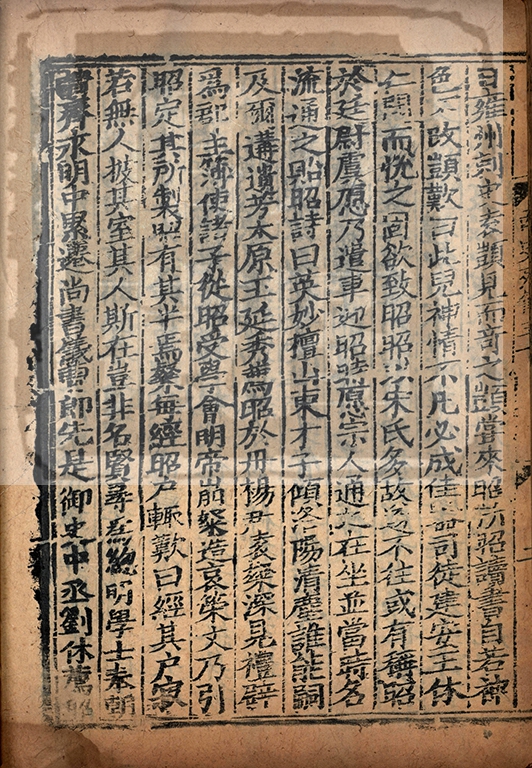 日雍州刺史袁顗見而奇之顗嘗來昭所昭讀書自若神
色不改顗歎曰此兒神情不凡必成佳器司徒建安王休
仁聞而悅之固欲致昭昭以宋氏多故遂不往或有稱昭
於廷尉虞愿乃遣車迎昭時愿宗人通之在坐並當時名
流通之貽昭詩曰英妙擅山東才子傾洛陽清塵誰能嗣
及爾遘遺芳太原王延秀薦昭於丹楊尹袁粲深見禮辟
爲郡主簿使諸子從昭受學會明帝崩粲造哀策文乃引
昭定其所製昭有其半焉粲每經昭戶輒歎曰經其戶寂
若無人披其室其人斯在豈非名賢尋爲總明學士奉朝
請齊永明中累遷尚書儀曹郎先是御史中丞劉休薦昭